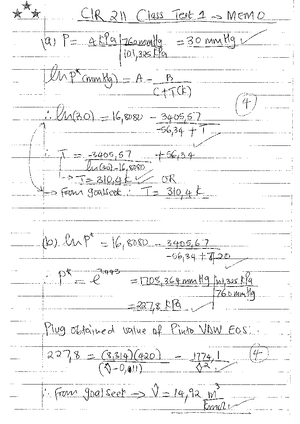 CIR 211 Class Test 1 → MEMO
(a) P = 4 kPa | 760mmHg / 101,325 kPa = 30 mmHg
ln P* (mmHg) = A - B / C+T(K)
(4)
∴ ln(30) = 16,8080 - 3405,57 / -56,34 + T
∴ T = -3405,57 / ln(30)-16,8080 + 56,34
→ T = 310,4 K OR
→ From goalseek: T = 310,4 K
(b) ln P* = 16,8080 - 3405,57 / -56,34 + 420
∴ P* = e^7,443 = 1705,364 mmHg | 101,325 kPa / 760 mmHg
= 227,8 kPa
Plug obtained value of P into VDW EOS:
227,8 = (8,314)(420) / (V̂-0,111) - 1774,1 / V̂²
(4)
∴ From goalseek → V̂ = 14,92 m³ / kmol